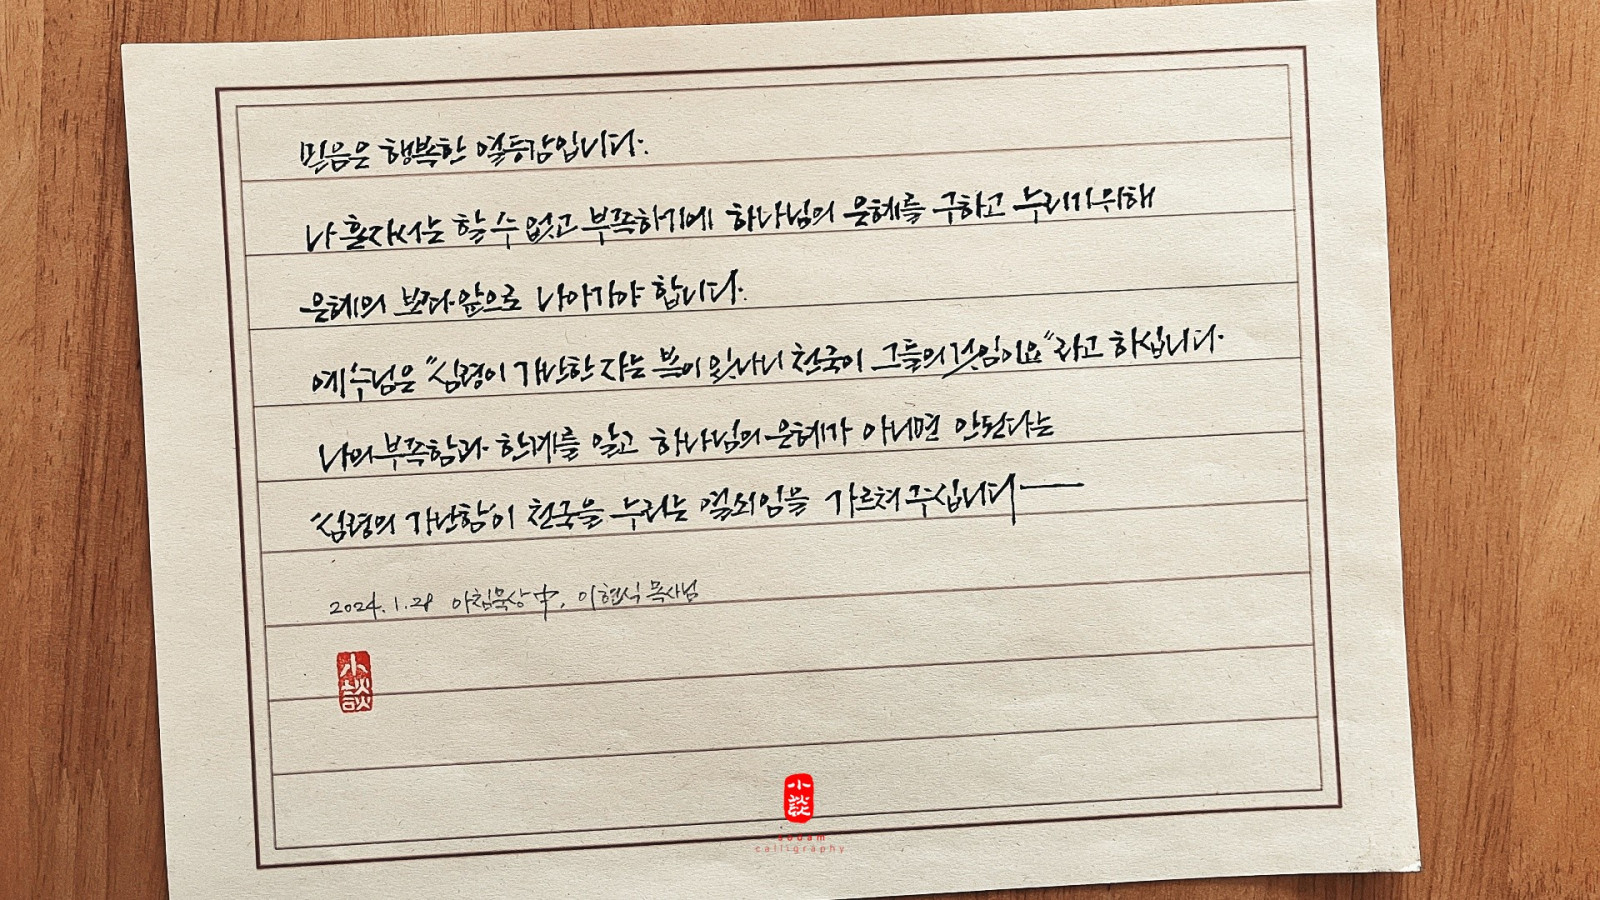 믿음은 행복한 열등감입니다.
나 혼자서는 할 수 없고 부족하기에 하나님의 은혜를 구하고 누리기 위해
은혜의 보좌 앞으로 나아가야 합니다.
예수님은 "심령이 가난한 자는 복이 있나니 천국이 그들의 것임이요"라고 하십니다.
나의 부족함과 한계를 알고 하나님의 은혜가 아니면 안된다는
"심령의 가난함"이 천국을 누리는 열쇠임을 가르쳐 주십니다
2024. 1. 28 아침묵상 中, 이현식 목사님
小談
小談
sodam
calligraphy